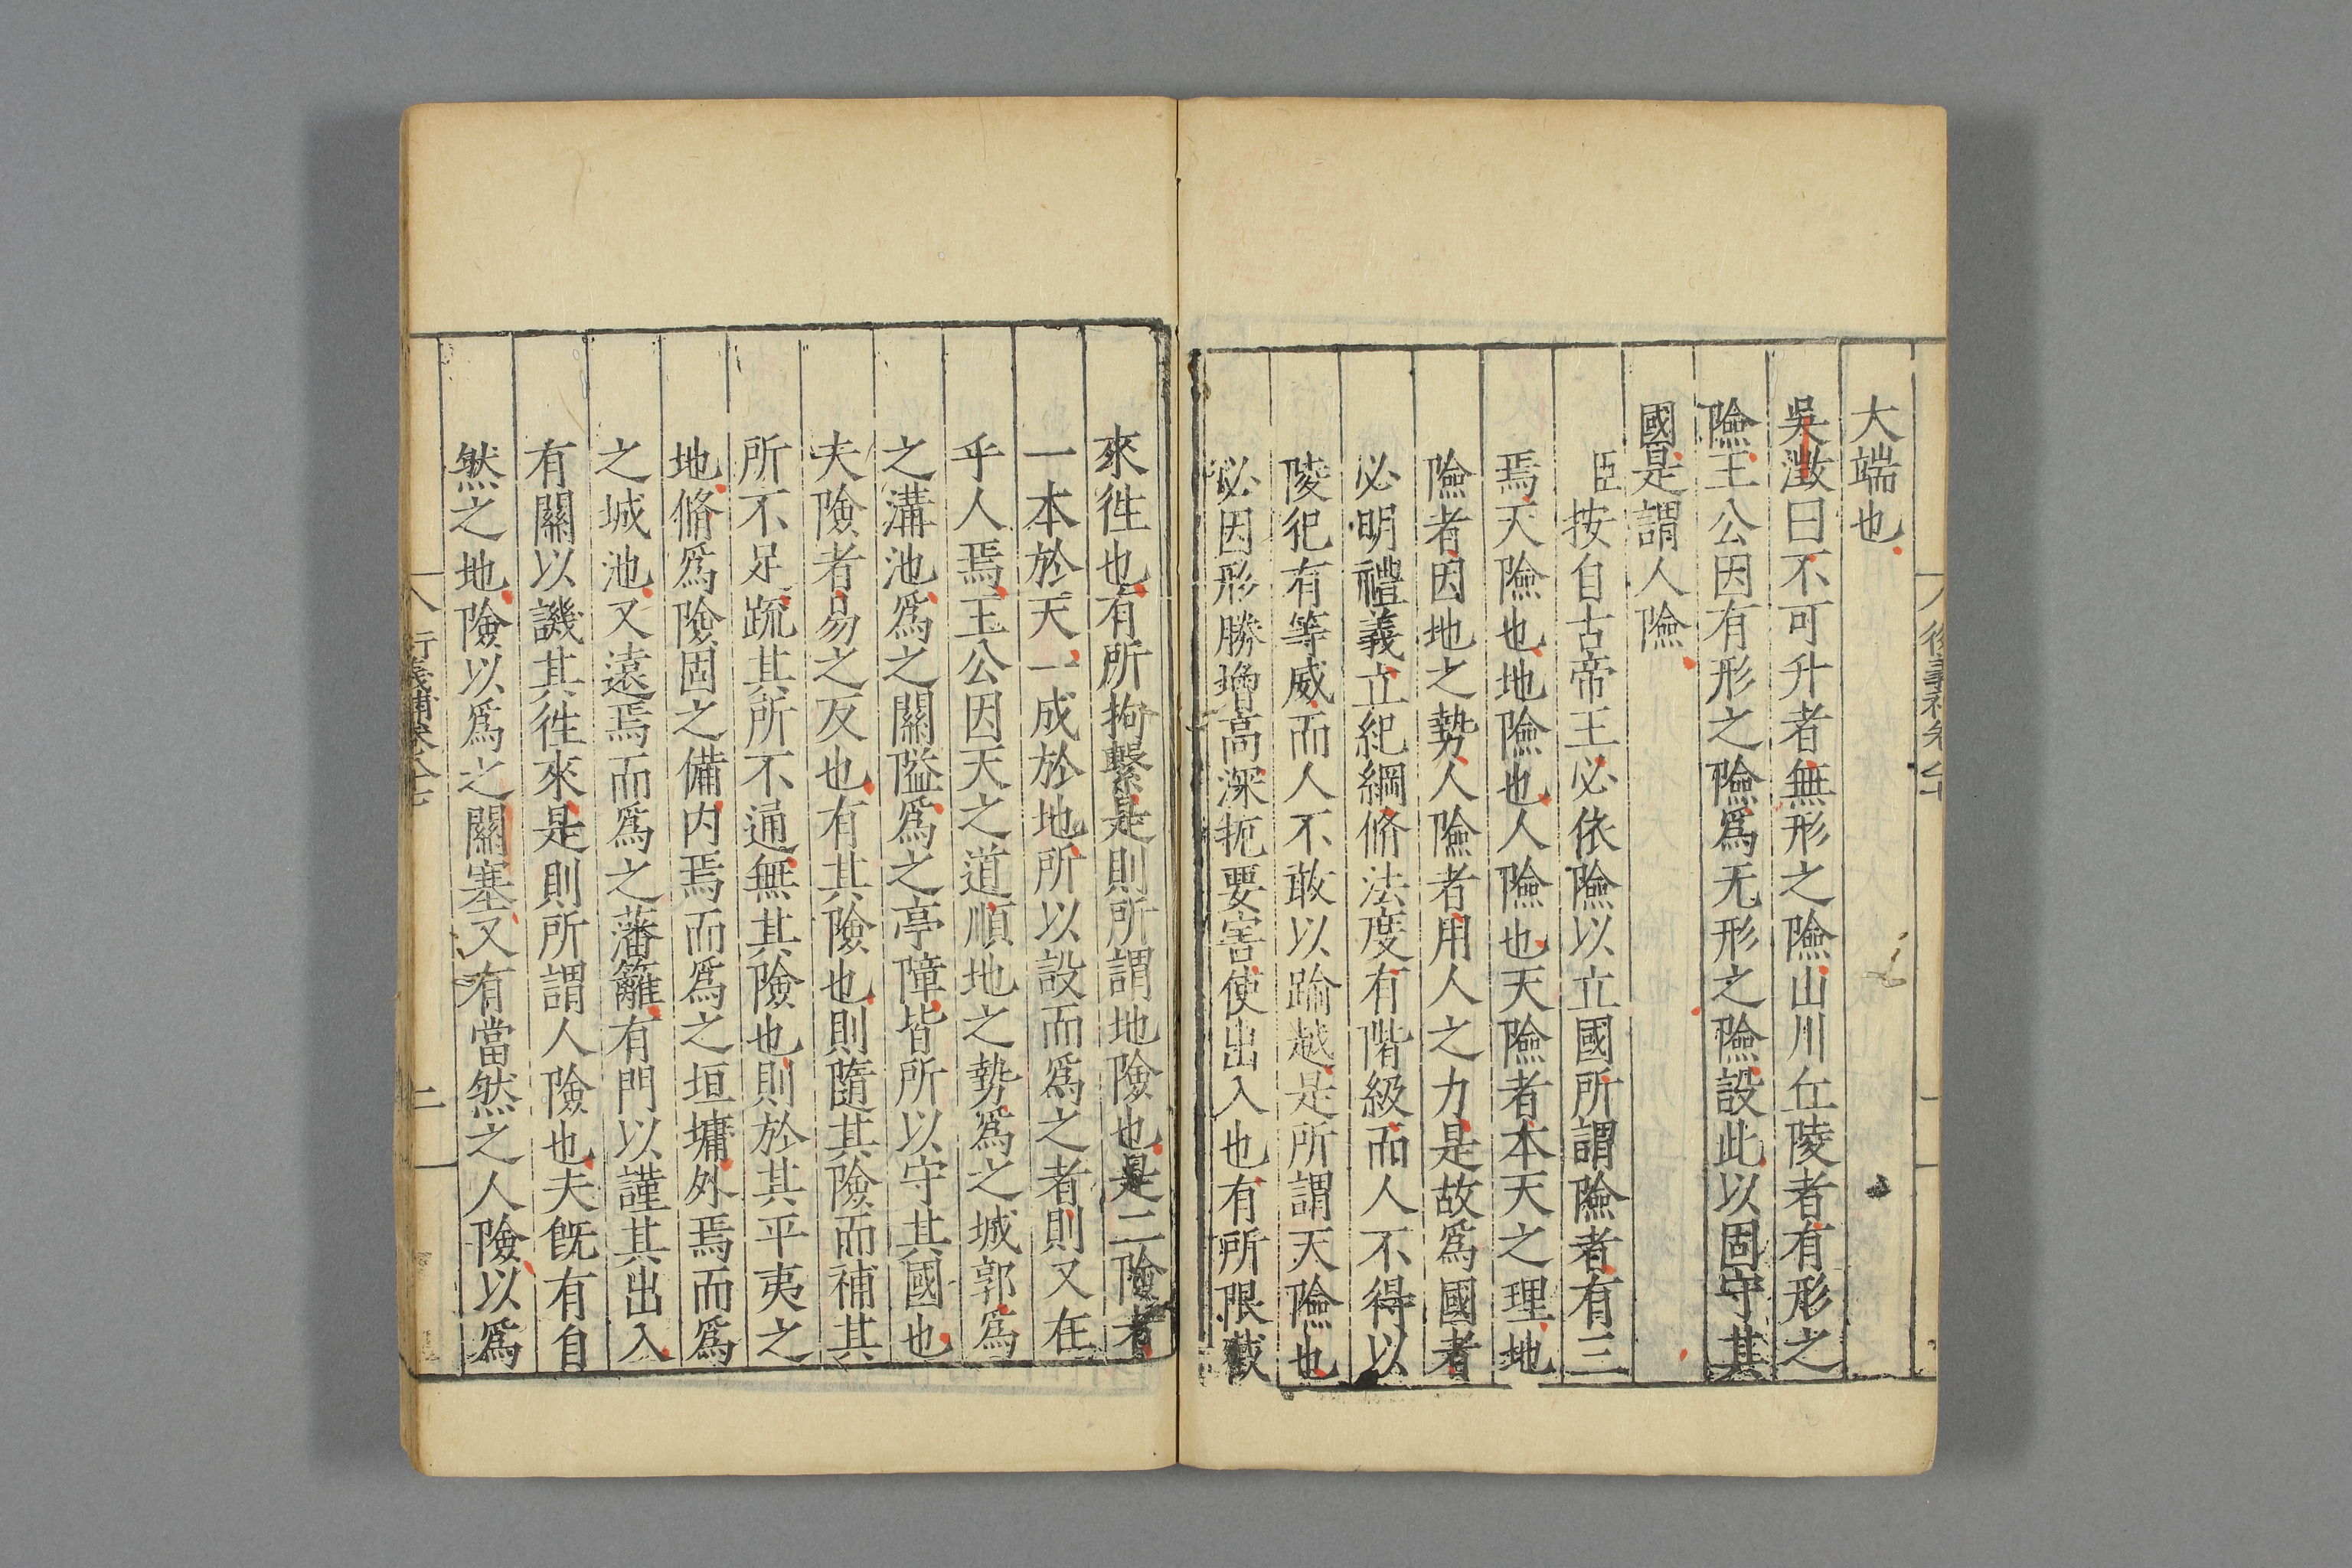 大端也
吳澂曰不可升者無形之險山川丘陵者有形之
險王公因有形之險爲无形之險設此以固守其
國是謂人險
臣按自古帝王必依險以立國所謂險者有三
焉天險也地險也人險也天險者本天之理地
險者因地之勢人險者用人之力是故爲國者
必明禮義立紀綱脩法度有階級而人不得以
陵犯有等威而人不敢以踰越是所謂天險也
必因形勝增高深扼要害使出入也有所限截
來徃也有所拘繫是則所謂地險也是二險者
一本於天一成於地所以設而爲之者則又在
乎人焉王公因天之道順地之勢爲之城郭爲
之溝池爲之關隘爲之亭障皆所以守其國也
夫險者易之反也有其險也則隨其險而補其
所不足疏其所不通無其險也則於其平夷之
地脩爲險固之備内焉而爲之垣墉外焉而爲
之城池又遠焉而爲之藩籬有門以謹其出入
有關以譏其徃來是則所謂人險也夫旣有自
然之地險以爲之關塞又有當然之人險以爲
二